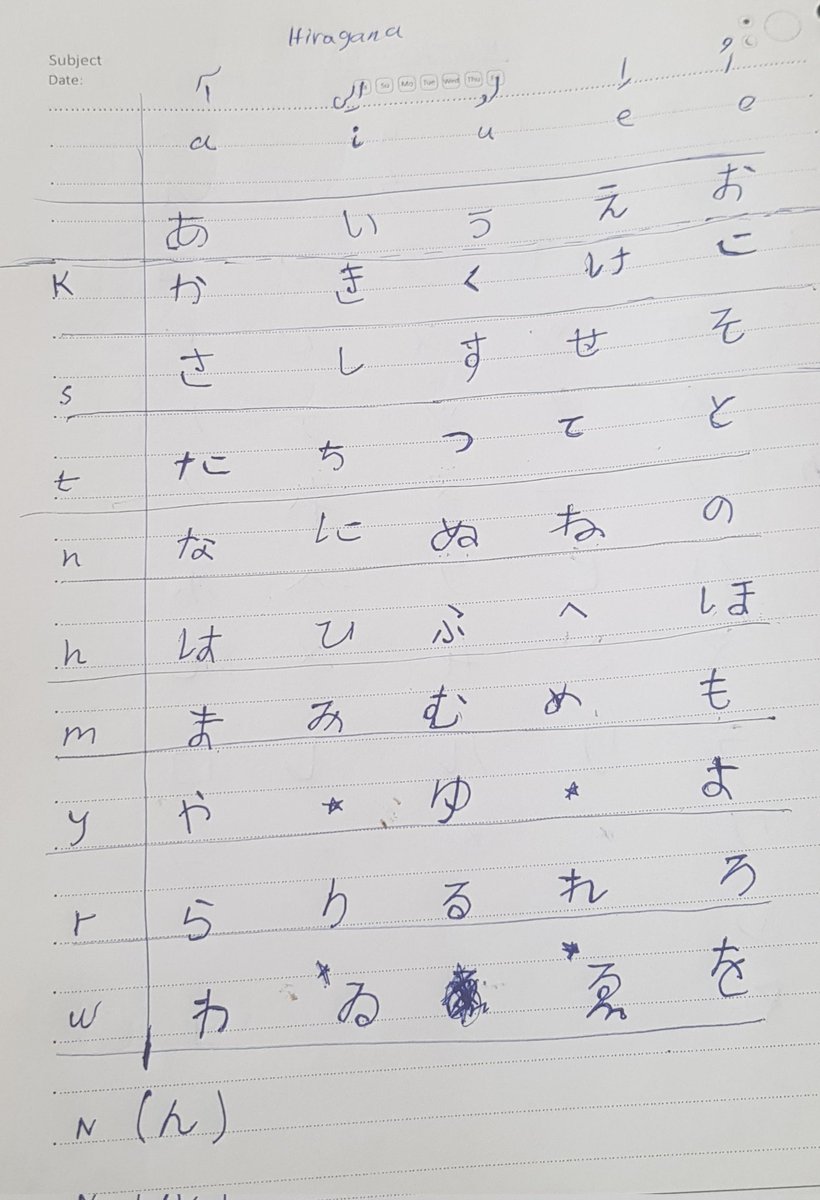 Hiragana
Subject
Date: Su Mo Tue Wed Thu
a i u e o
あ い う え お
K か き く け こ
s さ し す せ そ
t た ち つ て と
n な に ぬ ね の
h は ひ ふ へ ほ
m ま み む め も
y や * ゆ * よ
r ら り る れ ろ
w わ *ゐ *ゑ を
N (ん)